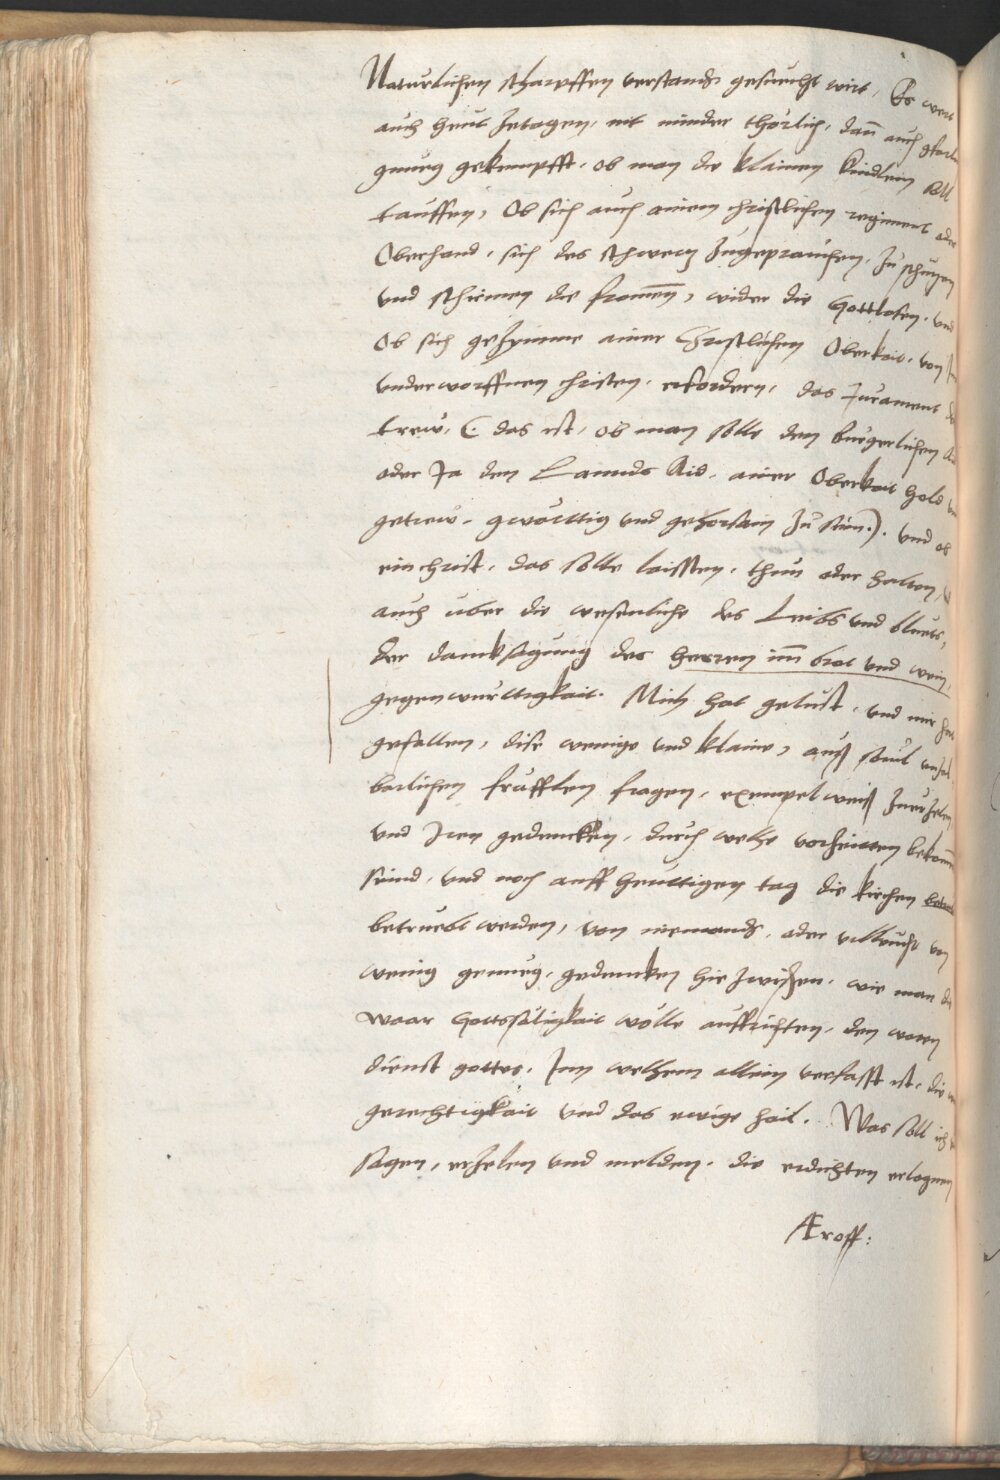 Naturlichen scharpffen verstands gesuecht wirt, Es wert
auch heut zetagen, nit minder thörlich, dañ auch gfarli
gnueg gekempfft, ob man die klainen kindlein soll
tauffen, Ob sich auch ainem christlichen regiment oder
Oberhand, sich des schwertz zugeprauchen, zu schutzen
vnd schirmen die fromen, wider die Gottlosen, vnd
Ob sich gezymme ainer Christlichen Oberkait, von
vnderworffnen christen, erfordern, das Jurament
trew, (das ist, ob man solle den burgerlichen
oder Ja den Lannds Aid, ainer Oberkait hold
getrew, gwärttig vnd gehorsam zu sein.). vnd ob
ein christ, das solte laisten, thun oder halten,
auch vber die wesenliche des Leibs vnd bluets,
der dancksagung des herren im̃ brot vnd wein,
gegenwurttigkait. Mich hat gelust, vnd mir hat
gefallen, dise wenige vnd klaine, auß souil
barlichen fragen, exempel weiß zuerzelen
vnd Iren gedencken, durch welhe vorzeitten
seind, vnd noch auff heuttigen tag die kirchen
betruebt werden, von niemands, oder villeucht von
wenig gnueg, gedencken hie zwischen, wie man die
waar Gottsäligkait wölle auffrichten, den waren
dienst gottes, Inn welhem allein verfasst ist, die
gerechtigkait vnd das ewige hail. Was soll ich
sagen, erzelen vnd melden, die erdichten erlognen